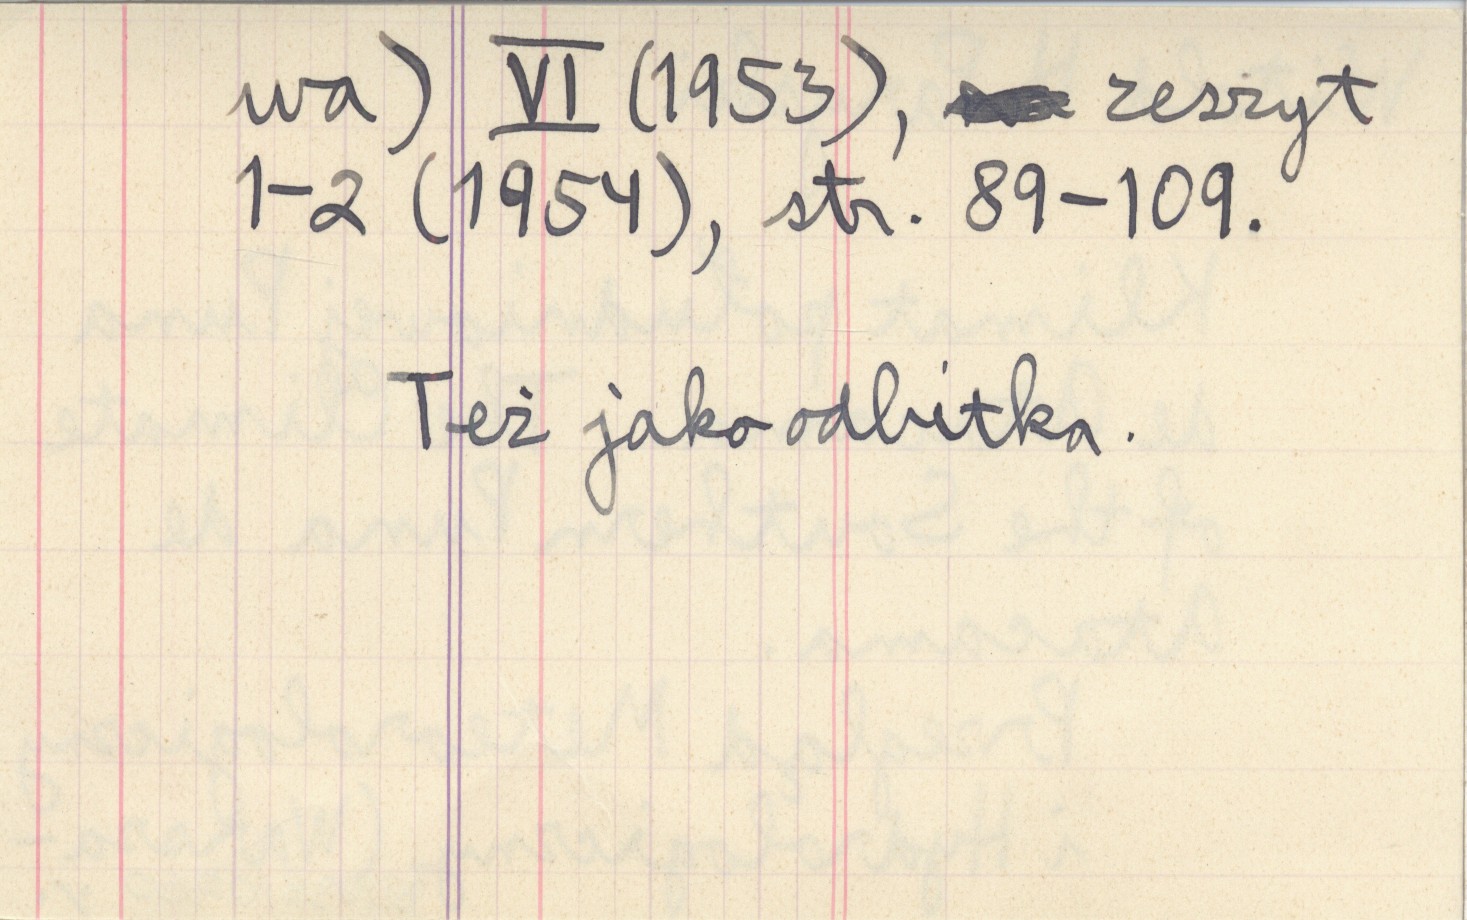 wa) VI (1953), zeszyt
1-2 (1954), str. 89-109.
Też jako odbitka.